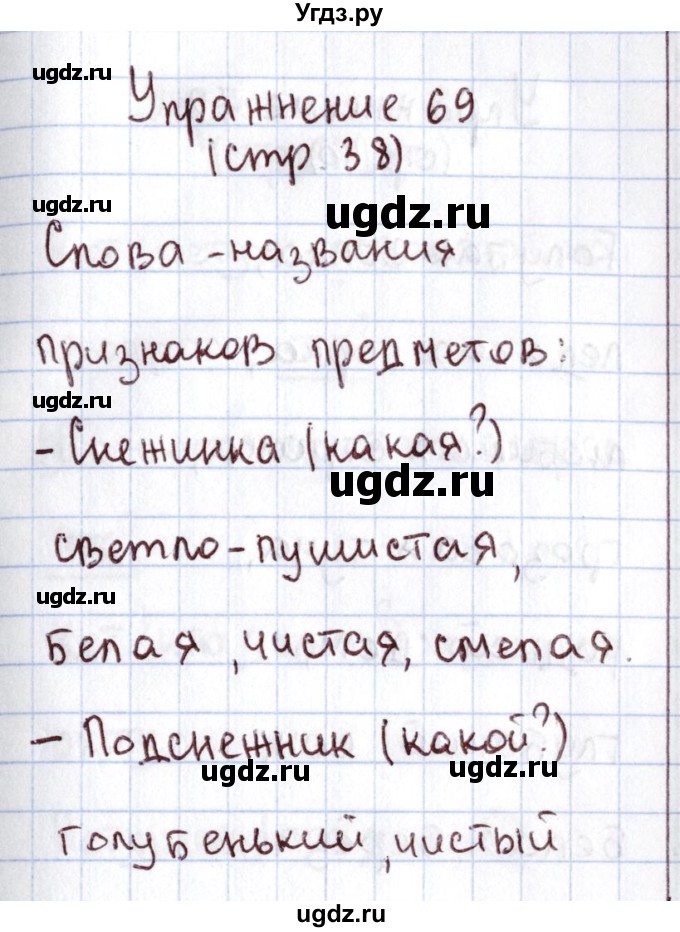 Угдз.ру
ugdz.ru
Упражнение 69
(стр. 38)
ugdz.ru
ugdz.ru
Слова - названия
признаков предметов:
ugdz.ru
- Снежинка (какая?)
ugdz.ru
светло - пушистая,
ugdz.ru
белая, чистая, смелая.
- Подснежник (какой?)
ugdz.ru
ugdz.ru
голубенький, чистый
ugdz.ru
ugdz.ru